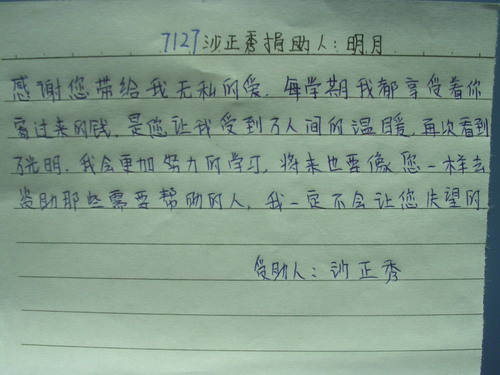 7127沙正秀捐助人:明月
感谢您带给我无私的爱.每学期我都享受着你
寄过来的钱.是您让我受到了人间的温暖.再次看到
了光明.我会更加努力的学习,将来也要像您一样去
资助那些需要帮助的人,我一定不会让您失望的
受助人:沙正秀